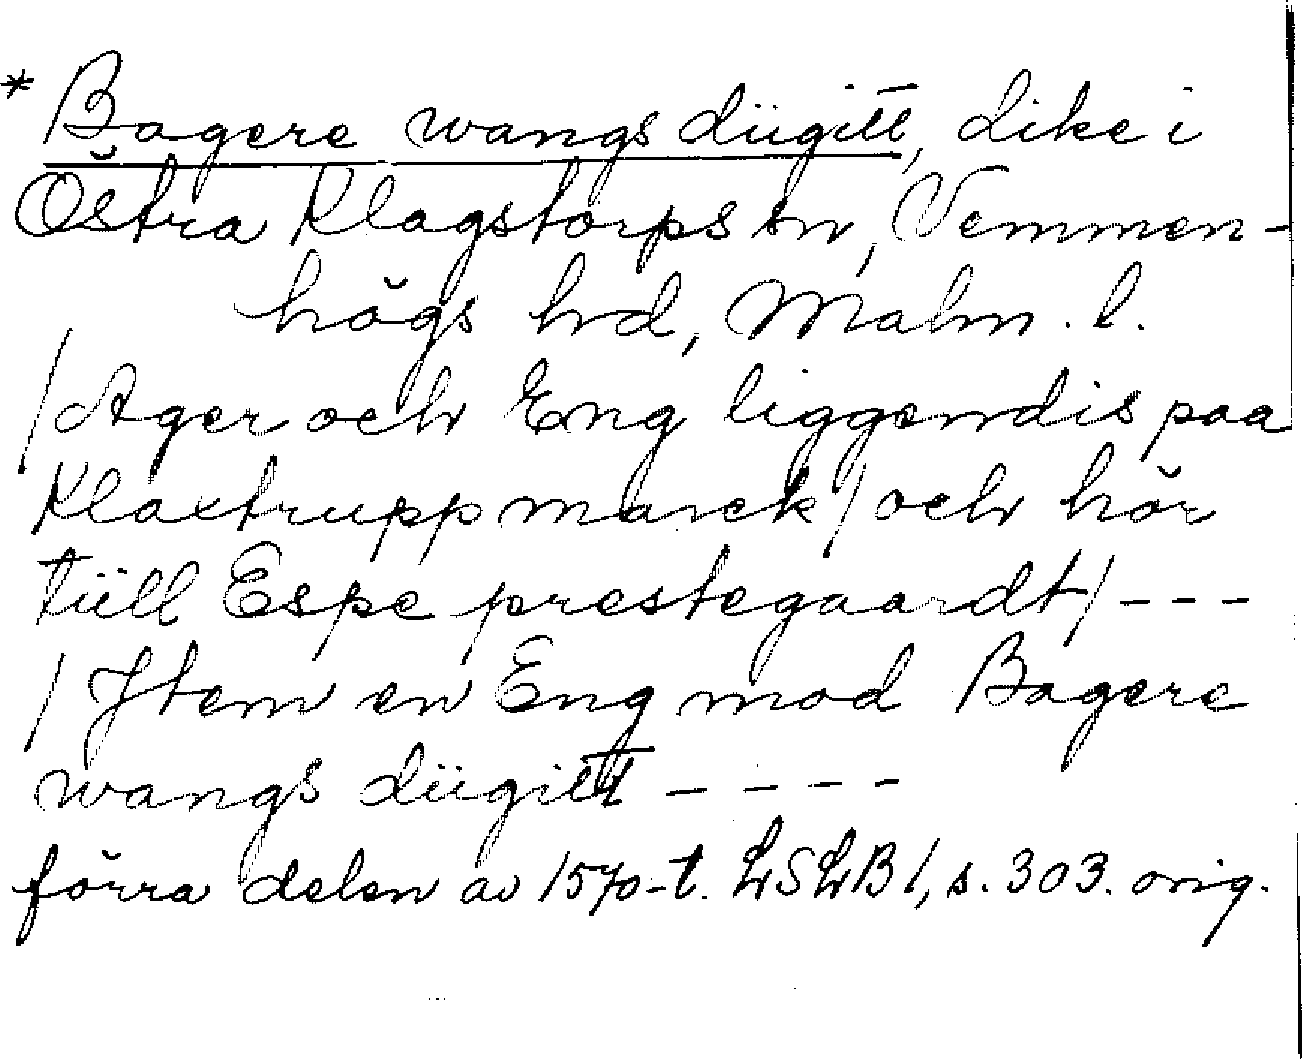 * Bagere wangs düigitt, dike i
Östra Klagstorps sn, Vemmen-
högs hd, Malm. l.
/Ager och Eng liggendis paa
Klaxtrupp marck/ och hör
tüll Espe prestegaardt/ - - -
/ Jtem en Eng mod Bagere
wangs düigitt - - - -
förra delen av 1570-t. LSLB 1, s. 303. orig.